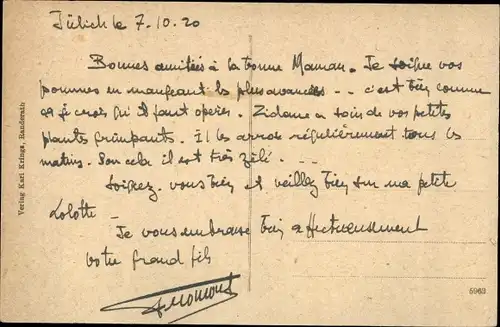 Jülich le 7.10.20
Bonnes amitiés à la bonne Maman. Je soigne vos
pommes en mangeant les plus avancées -- c'est bien comme
ça je crois qu'il faut opérer. Zidame a soin de vos petites
plantes grimpants. Il les arrose régulièrement tous les
matins. Pour cela il est très zélé. ---
Soignez-vous bien et veillez bien sur ma petite
Lolotte -
Je vous embrasse bien affectueusement
Votre grand fils
Verlag Karl Krings, Randerath
5963